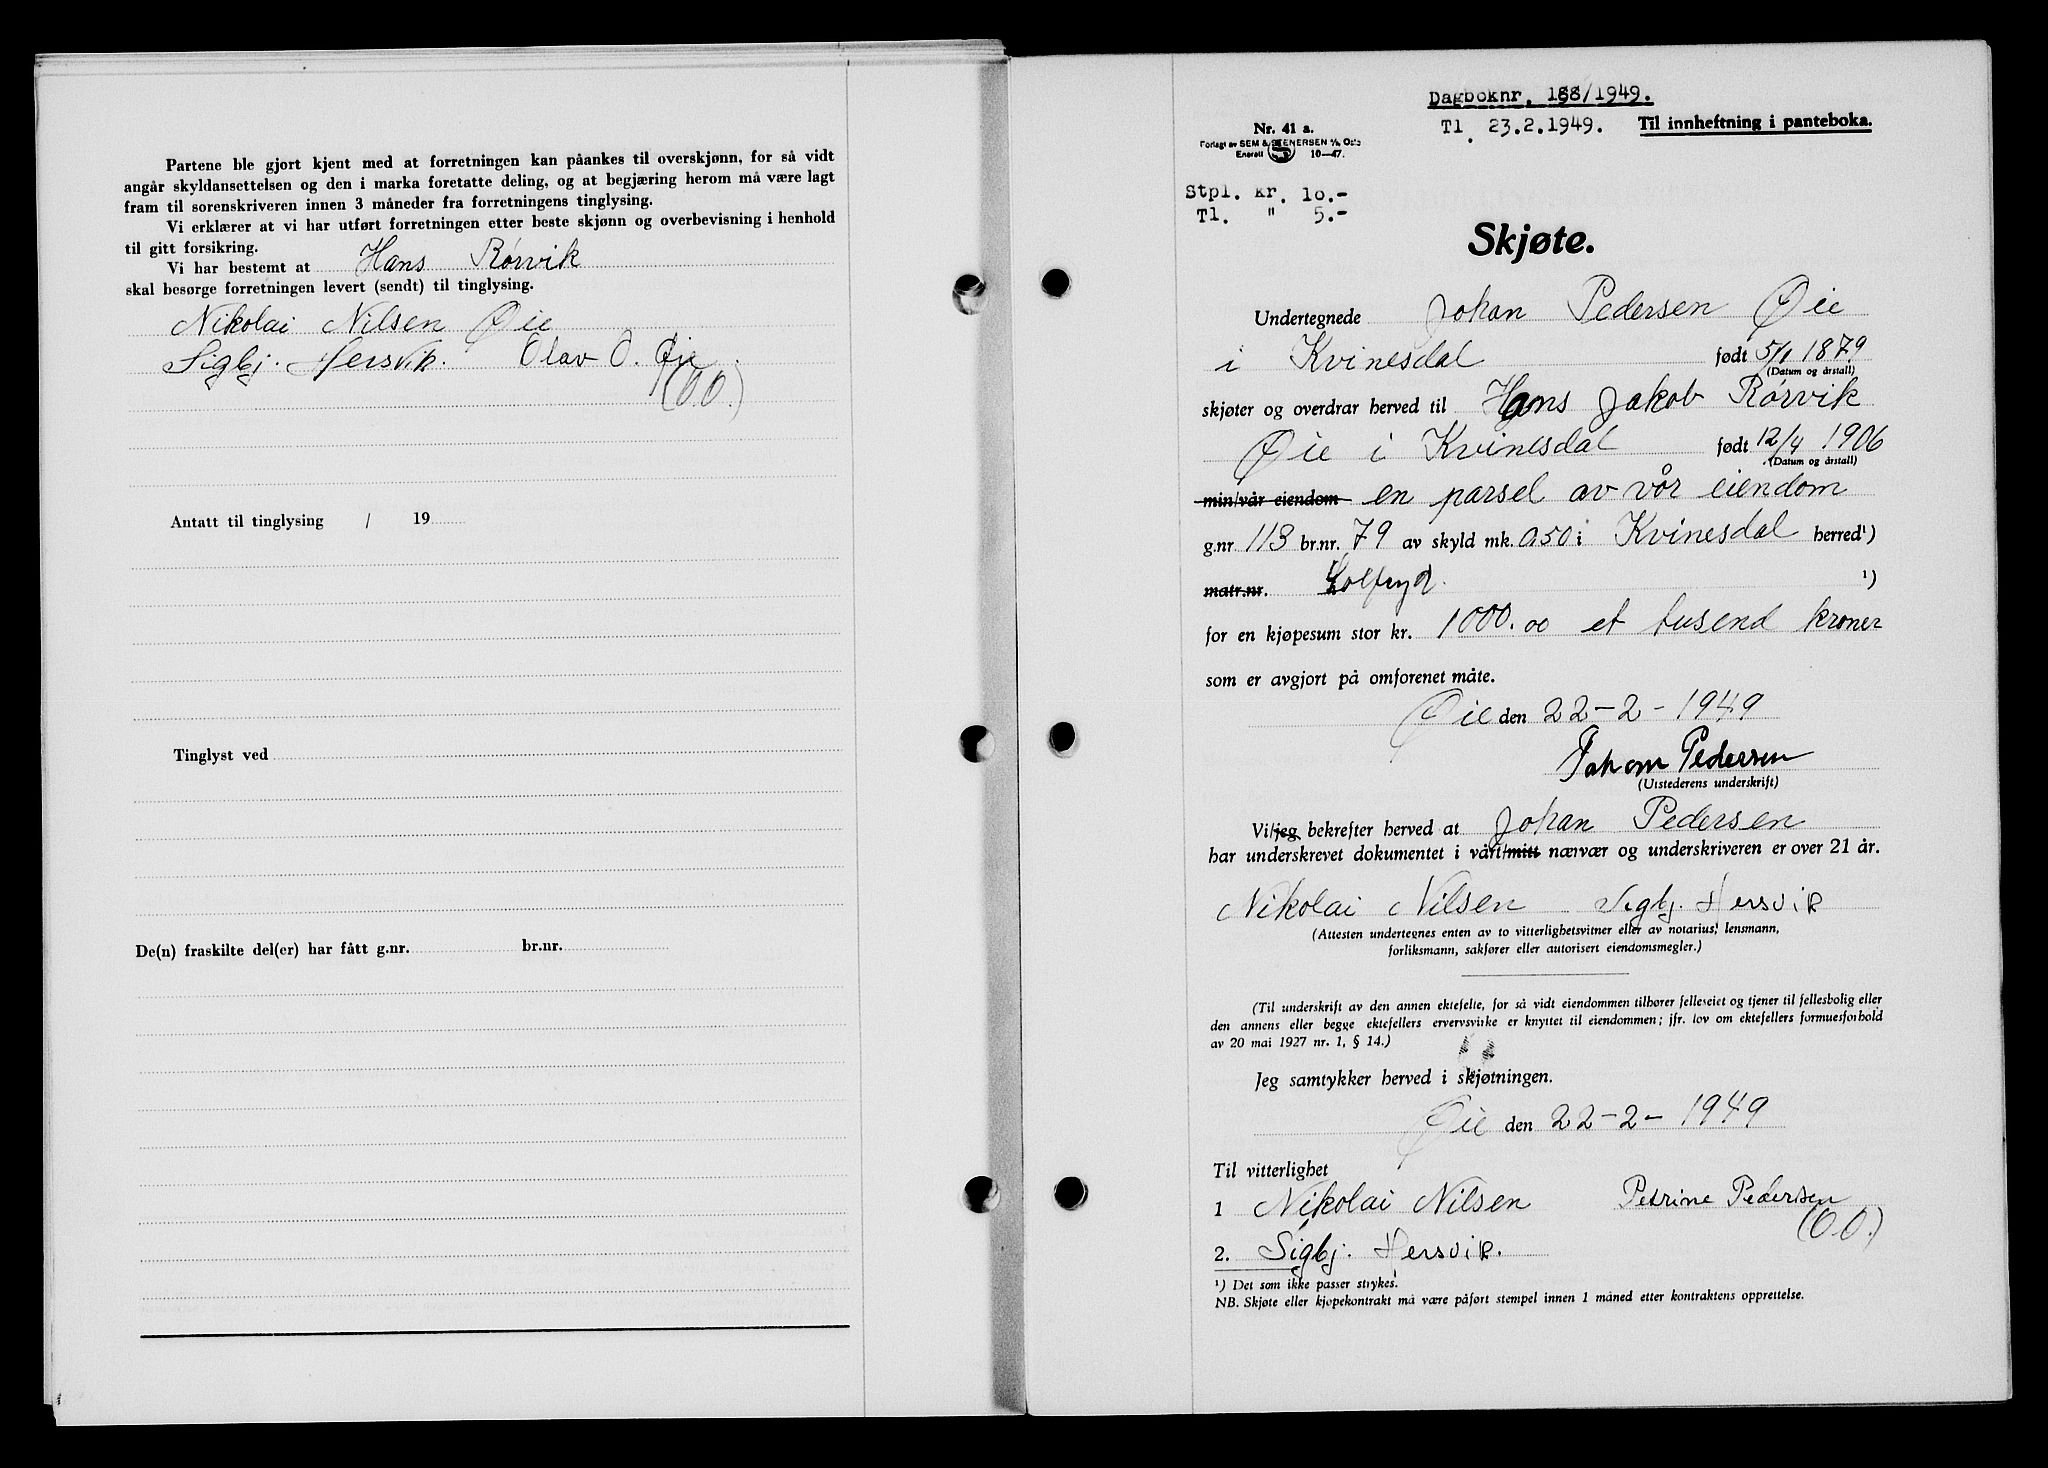 Partene ble gjort kjent med at forretningen kan påankes til overskjønn, for så vidt
angår skyldansettelsen og den i marka foretatte deling, og at begjæring herom må være lagt
fram til sorenskriveren innen 3 måneder fra forretningens tinglysing.
Vi erklærer at vi har utført forretningen etter beste skjønn og overbevisning i henhold
til gitt forsikring.
Vi har bestemt at Hans Rørvik
skal besørge forretningen levert (sendt) til tinglysing.
Nikolai Nilsen Øie
Sigbj. Hersvik. Olav O. Øie
(O.O.)
Antatt til tinglysing / 19
Tinglyst ved
De(n) fraskilte del(er) har fått g.nr. br.nr.
Dagboknr. 188/1949.
Tl. 23.2.1949. Til innheftning i panteboka.
Nr. 41 a.
Forlagt av SEM & STENERSEN A/S, Oslo
Enerett S 10—47.
Stpl. kr. 10.-
Tl. " 5.-
Skjøte.
Undertegnede Johan Pedersen Øie
i Kvinesdal født 5/1 1879
(Datum og årstall)
skjøter og overdrar herved til Hans Jakob Rørvik
Øie i Kvinesdal født 12/4 1906
(Datum og årstall)
min/vår eiendom en parsel av vår eiendom
g.nr. 113 br.nr. 79 av skyld mk. 0.50 i Kvinesdal herred¹)
matr.nr. ¹)
for en kjøpesum stor kr. 1000.00 et tusend kroner
som er avgjort på omforenet måte.
Øie den 22-2-1949
Johan Pedersen
(Utstederens underskrift)
Vi/jeg bekrefter herved at Johan Pedersen
har underskrevet dokumentet i vårt/mitt nærvær og underskriveren er over 21 år.
Nikolai Nilsen Sigbj. Hersvik
(Attesten undertegnes enten av to vitterlighetsvitner eller av notarius, lensmann,
forliksmann, sakfører eller autorisert eiendomsmegler.)
(Til underskrift av den annen ektefelte, for så vidt eiendommen tilhører felleseiet og tjener til fellesbolig eller
den annens eller begge ektefellers ervervsvirke er knyttet til eiendommen; jfr. lov om ektefellers formuesforhold
av 20 mai 1927 nr. 1, § 14.)
Jeg samtykker herved i skjøtningen.
Øie den 22-2-1949
Til vitterlighet
1 Nikolai Nilsen Petrine Pedersen
(O.O.)
2. Sigbj. Hersvik.
¹) Det som ikke passer strykes.
NB. Skjøte eller kjøpekontrakt må være påført stempel innen 1 måned etter kontraktens opprettelse.